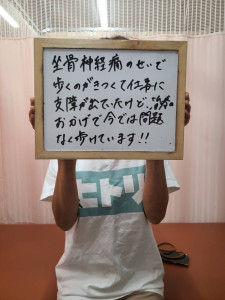 坐骨神経痛のせいで
歩くのがきつくて仕事に
支障が出ていたけど、治療の
おかげで今では問題
なく歩けています!!
モドリ